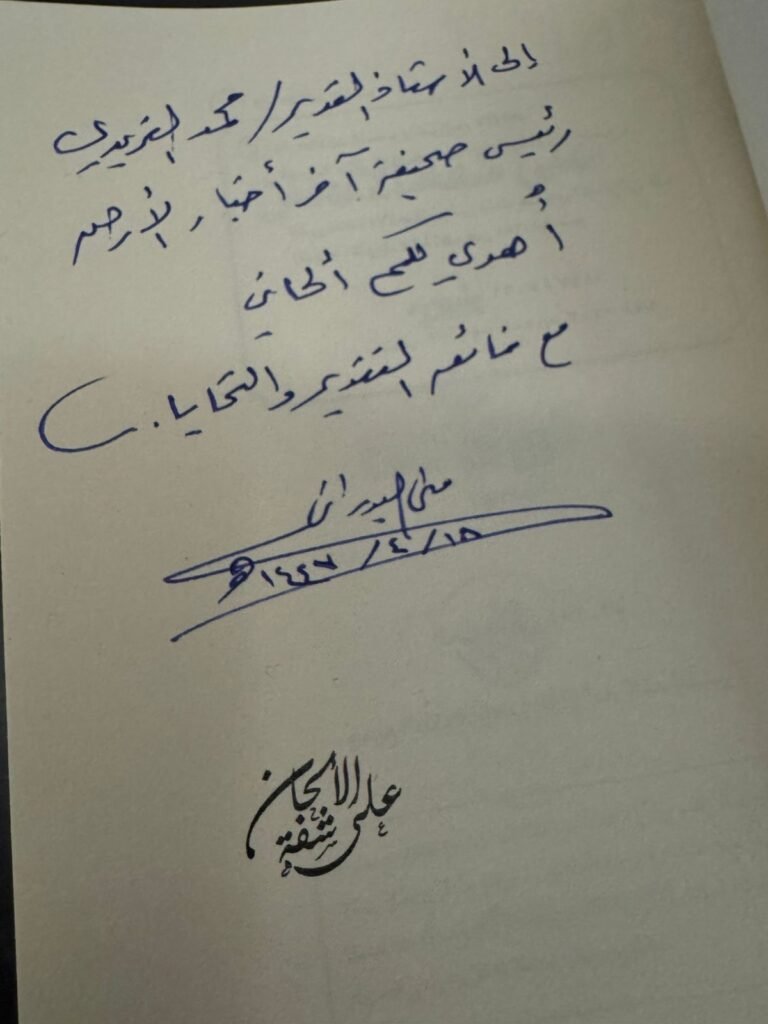 إلى الأستاذ القدير/ محمد الفريدي
رئيس صحيفة آخر أخبار الأرض
أُهدي لكم ألحاني
مع فائق التقدير والتحايا.
منى البدراني
١٥/٤/١٤٤٧هـ
على شفة الألحان